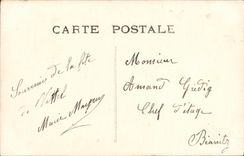 CARTE POSTALE
Souvenir de la fête
de Vittel
Marie
Monsieur
Amand
Chef d'étage
Biarritz